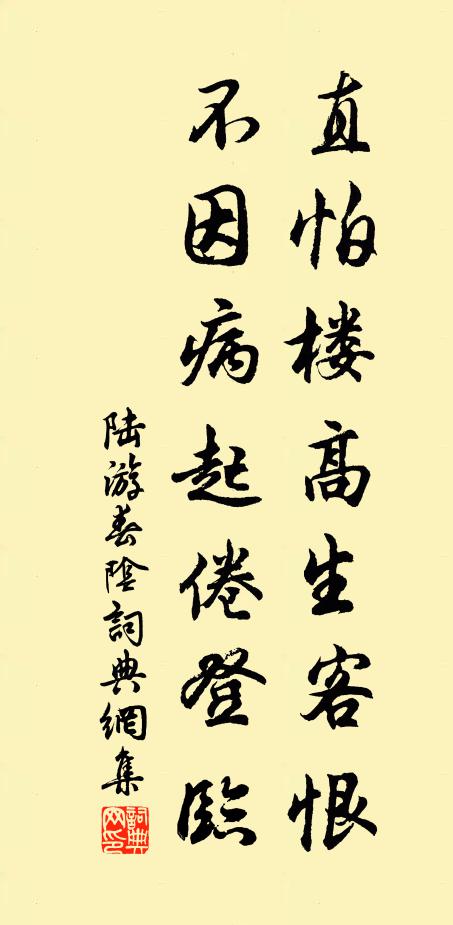 直怕楼高生客恨
不因病起倦登临
陆游春阴詞典網集
詞典网印